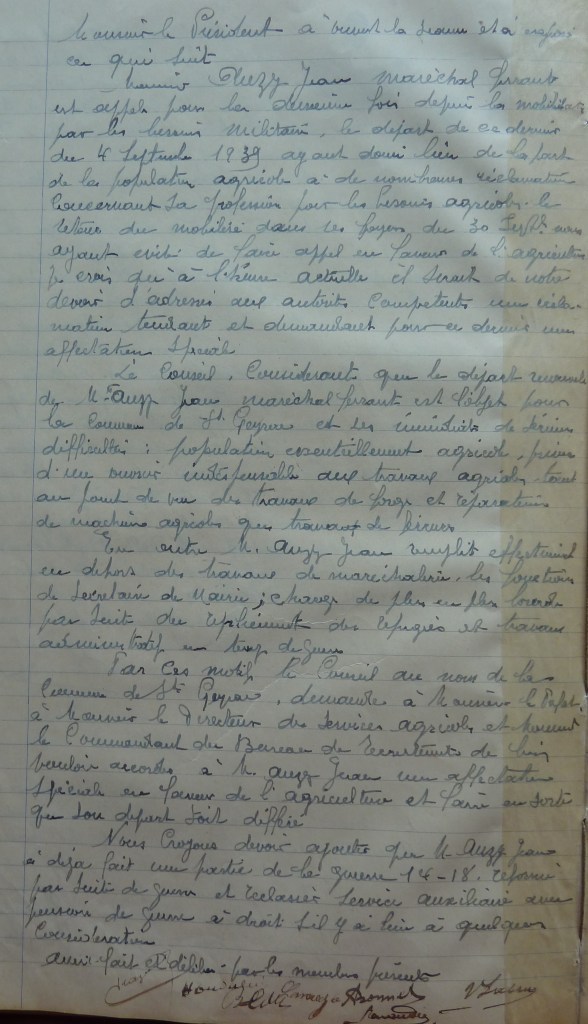 Monsieur le Président à ouvert la séance et à exposé
ce qui suit
Monsieur Auzy Jean maréchal ferrant
est appelé pour la deuxième fois depuis la mobilisation
par les besoins militaires, le départ de ce dernier
du 4 Septembre 1939 ayant donné lieu de la part
de la population agricole à de nombreuses réclamations
concernant sa profession pour les besoins agricoles. le
retour du mobilisé dans ses foyers du 30 Sept. nous
ayant évité de faire appel en faveur de l'agriculture
je crois qu'à l'heure actuelle il serait de notre
devoir d'adresser aux autorités compétentes une récla-
mation tendant et demandant pour ce dernier une
affectation spéciale
Le Conseil, Considérant que le départ
de M. Auzy Jean maréchal ferrant est l'objet pour
la Commune de St Geyrac et ses de
difficultés : population essentiellement agricole, privée
d'un ouvrier indispensable aux travaux agricoles tant
au point de vue des travaux de forge et réparations
de machines agricoles que travaux de
En outre M. Auzy Jean remplit effectivement
en dehors des travaux de maréchalerie, les fonctions
de Secrétaire de Mairie ; charge de plus en plus lourde
par suite du repliement des réfugiés et travaux
administratif en temps de guerre
Par ces motifs le Conseil au nom de la
Commune de St Geyrac, demande à Monsieur le Préfet
à Monsieur le Directeur des Services agricoles et Monsieur
le Commandant du Bureau de Recrutement de bien
vouloir accorder à M. Auzy Jean une affectation
spéciale en faveur de l'agriculture et faire en sorte
que son départ soit différé
Nous Croyons devoir ajouter que M. Auzy Jean
à déjà fait une partie de la guerre 14-18. réformé
par suite de guerre et reclassé service auxiliaire avec
pension de guerre à droit s'il y a lieu à quelques
Considération
Ainsi fait et délibéré par les membres présents